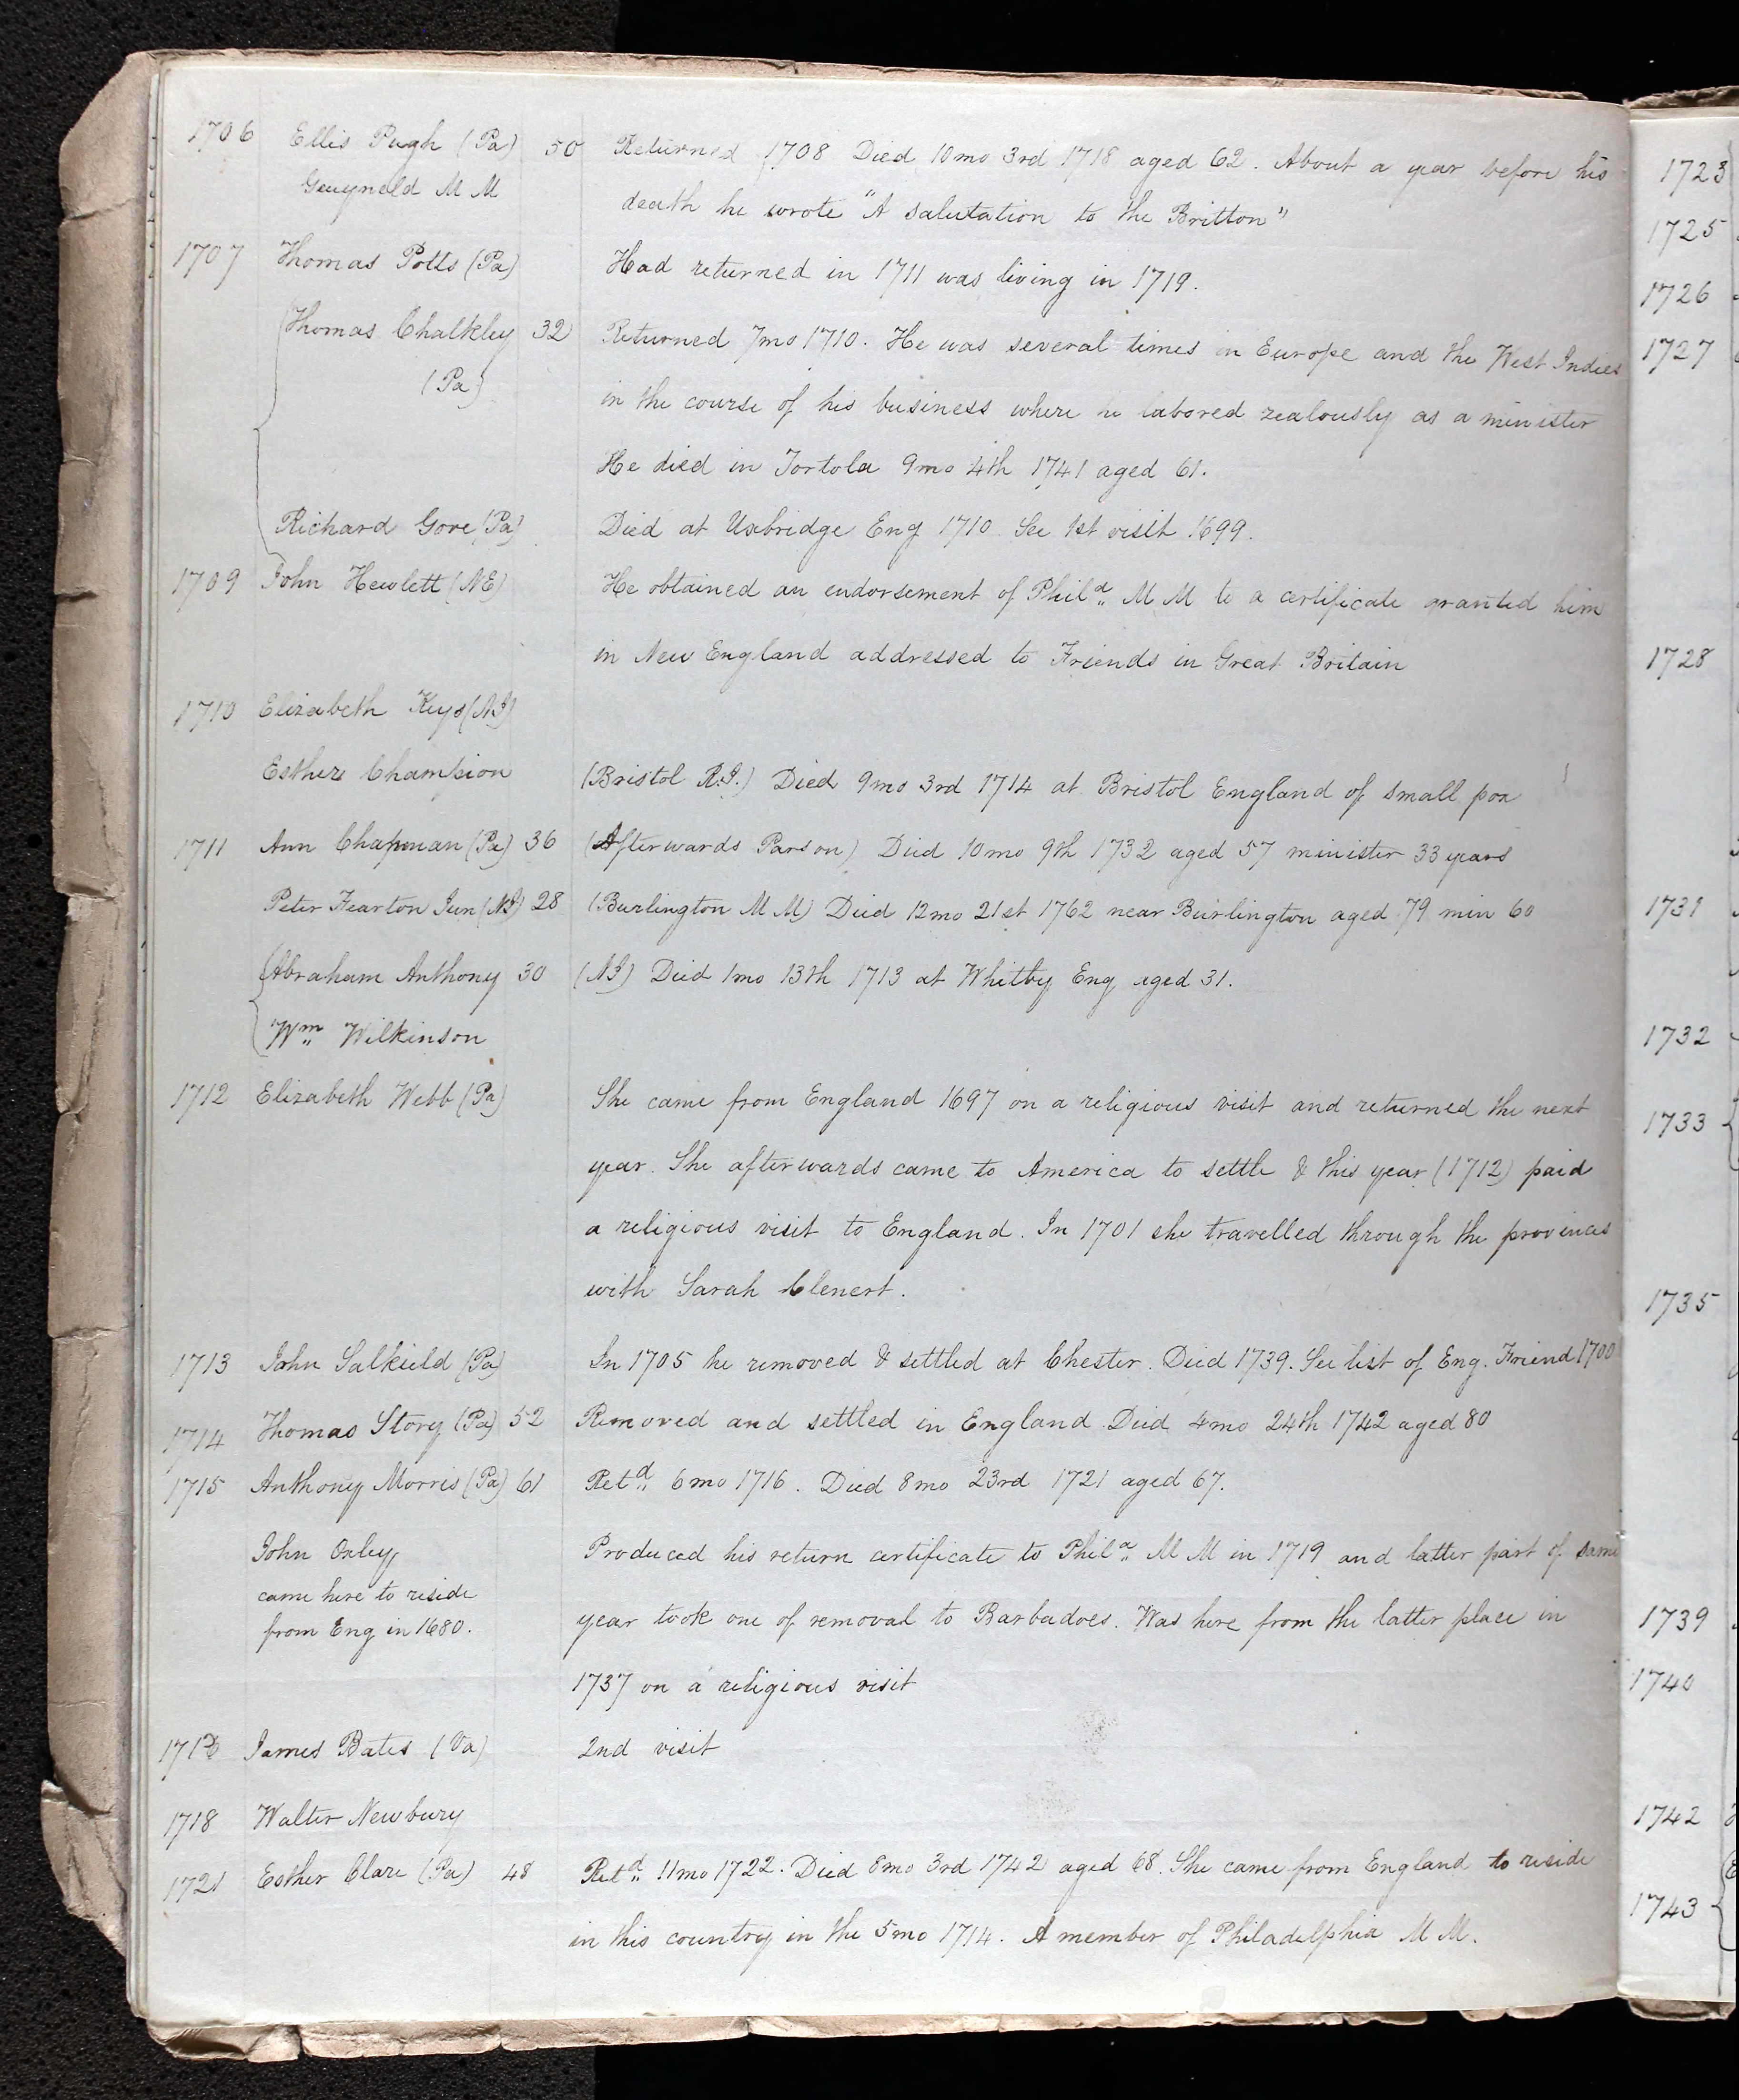 1706 Ellis Pugh (Pa) 50 Returned 1708 Died 10mo 3rd 1718 aged 62. About a year before his
Gwyneld M M death he wrote "A salutation to the Britton"
1707 Thomas Potts (Pa) Had returned in 1711 was living in 1719.
Thomas Chalkley 32 Returned 7mo 1710. He was several times in Europe and the West Indies
(Pa) in the course of his business where he labored zealously as a minister
He died in Tortola 9mo 4th 1741 aged 61.
Richard Gove (Pa) Died at Uxbridge Eng 1710. See 1st visit 1699.
1709 John Hewlett (NE) He obtained an endorsement of Phila M M to a certificate granted him
in New England addressed to Friends in Great Britain
1710 Elizabeth Keys (NJ)
Esther Champion (Bristol R.I.) Died 9mo 3rd 1714 at Bristol England of small pox
1711 Ann Chapman (Pa) 36 (Afterwards Parson) Died 10mo 9th 1732 aged 57 minister 33 years
Peter Fearton Jun (NJ) 28 (Burlington M M) Died 12mo 21st 1762 near Burlington aged 79 min 60
Abraham Anthony 30 (NJ) Died 1mo 13th 1713 at Whitby Eng aged 31.
Wm Wilkinson
1712 Elizabeth Webb (Pa) She came from England 1697 on a religious visit and returned the next
year. She afterwards came to America to settle & this year (1712) paid
a religious visit to England. In 1701 she travelled through the provinces
with Sarah Clenert.
1713 John Salkield (Pa) In 1705 he removed & settled at Chester. Died 1739. See list of Eng. Friend 1700
1714 Thomas Story (Pa) 52 Removed and settled in England Died 4mo 24th 1742 aged 80
1715 Anthony Morris (Pa) 61 Retd 6mo 1716. Died 8mo 23rd 1721 aged 67.
John Oxley, Produced his return certificate to Phila M M in 1719 and latter part of same
came here to reside
from Eng in 1680. year took one of removal to Barbadoes. Was here from the latter place in
1737 on a religious visit
James Bates (Va) 2nd visit
1718 Walter Newbury
1721 Esther Clare (Pa) 48 Retd 11mo 1722. Died 8mo 3rd 1742 aged 68. She came from England to reside
in this country in the 5mo 1714. A member of Philadelphia M M.
1723
1725
1726
1727
1728
1731
1732
1733
1735
1739
1740
1742
1743